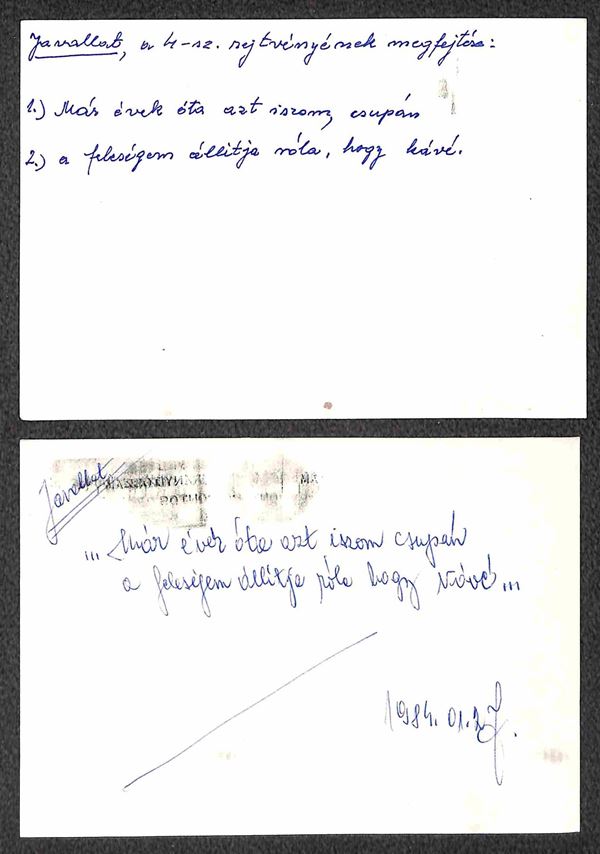 Javallat, a 4-sz. rejtvényének megfejtése:
1.) Más évek óta azt iszom, csupán
2.) a feleségem állitja róla, hogy kávé.
Javallat
"... Már évek óta azt iszom csupán
a feleségem állitja róla hogy kávé ...
1984.01.27.